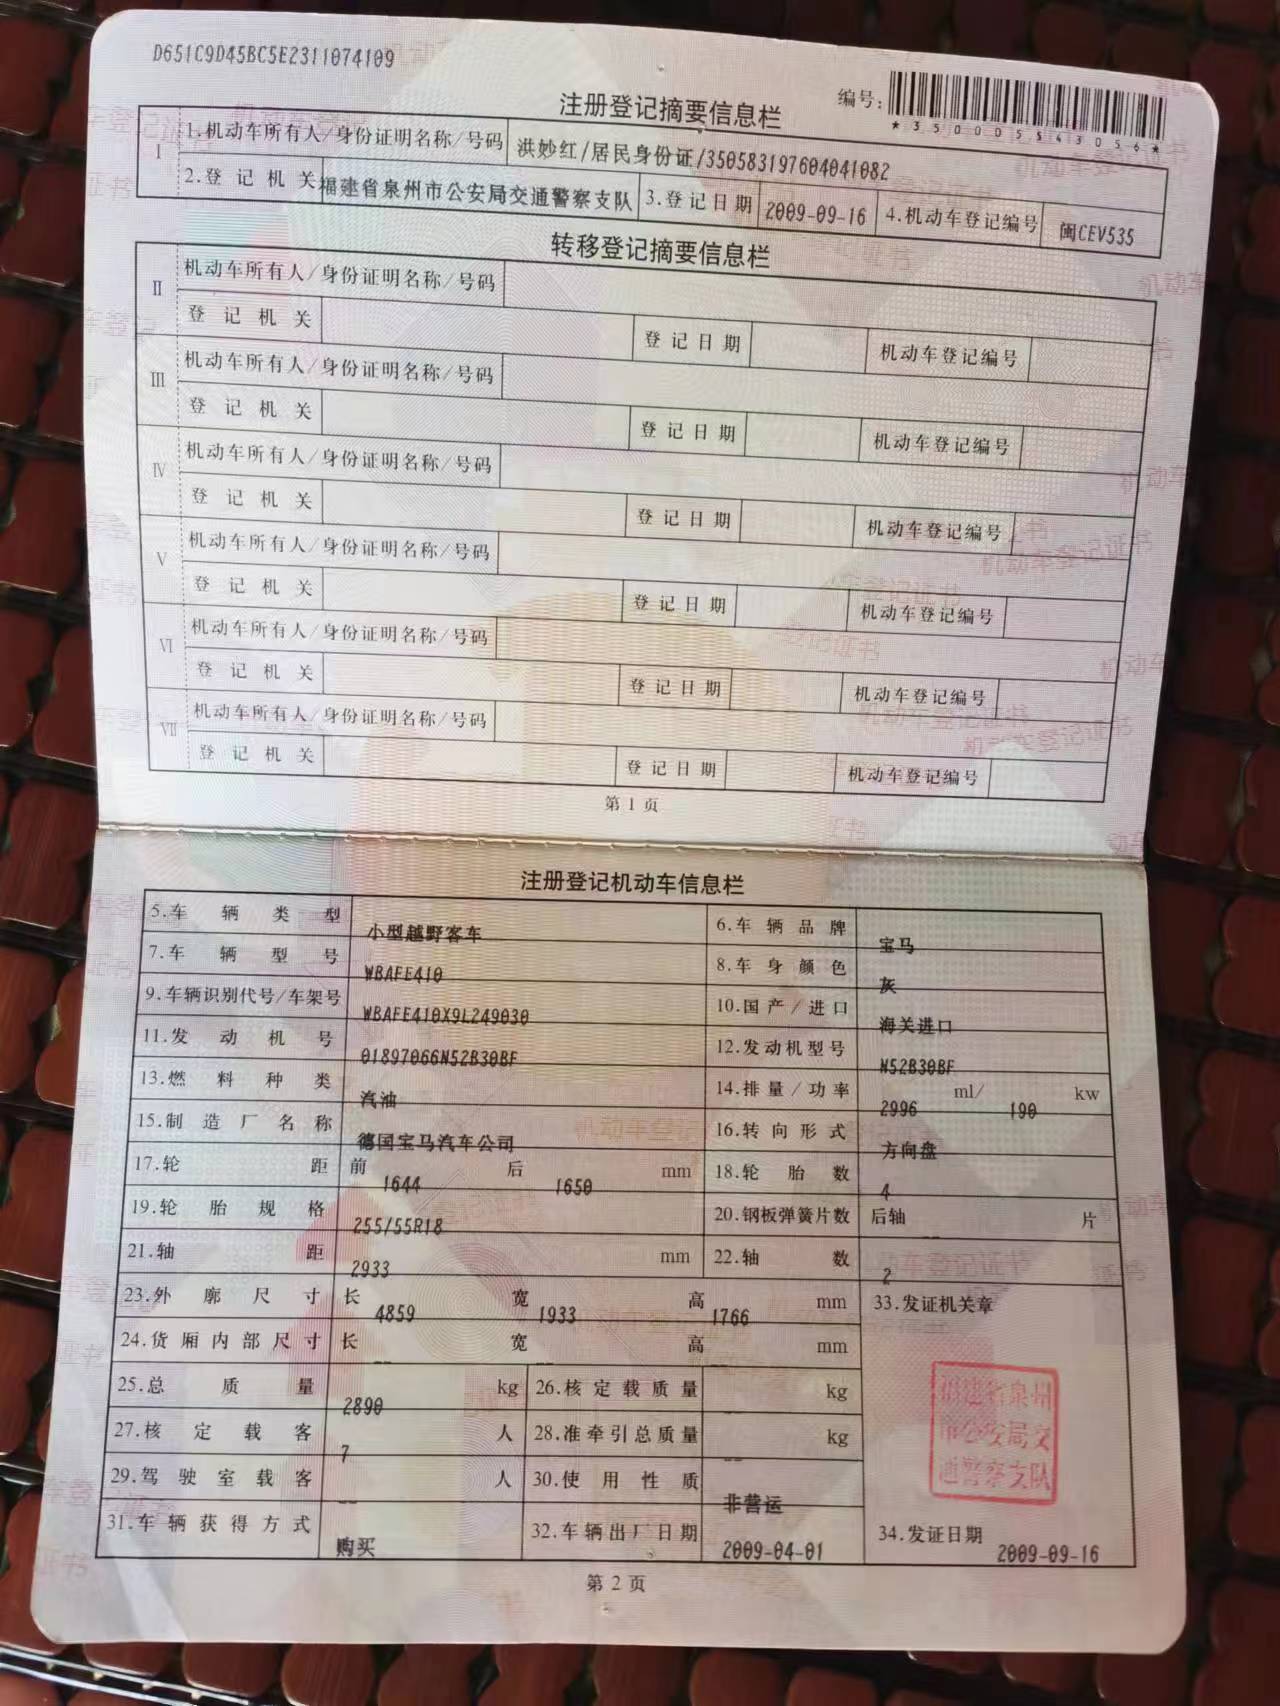 D651C9D45BC5E2311074109
注册登记摘要信息栏
编号:
*350005543056*
I
1.机动车所有人/身份证明名称/号码 洪妙红/居民身份证/350583197604041082
2.登记机关 福建省泉州市公安局交通警察支队 3.登记日期 2009-09-16 4.机动车登记编号 闽CEV535
转移登记摘要信息栏
II 机动车所有人/身份证明名称/号码
登记机关 登记日期 机动车登记编号
III 机动车所有人/身份证明名称/号码
登记机关 登记日期 机动车登记编号
IV 机动车所有人/身份证明名称/号码
登记机关 登记日期 机动车登记编号
V 机动车所有人/身份证明名称/号码
登记机关 登记日期 机动车登记编号
VI 机动车所有人/身份证明名称/号码
登记机关 登记日期 机动车登记编号
VII 机动车所有人/身份证明名称/号码
登记机关 登记日期 机动车登记编号
第1页
注册登记机动车信息栏
5.车辆类型 小型越野客车 6.车辆品牌 宝马
7.车辆型号 WBAFE410 8.车身颜色 灰
9.车辆识别代号/车架号 WBAFE410X9L249030 10.国产/进口 海关进口
11.发动机号 01897066N52B30BF 12.发动机型号 N52B30BF
13.燃料种类 汽油 14.排量/功率 2996 ml/ 190 kw
15.制造厂名称 德国宝马汽车公司 16.转向形式 方向盘
17.轮距 前 1644 后 1650 mm 18.轮胎数 4
19.轮胎规格 255/55R18 20.钢板弹簧片数 后轴 -- 片
21.轴距 2933 mm 22.轴数 2
23.外廓尺寸 长 4859 宽 1933 高 1766 mm 33.发证机关章
24.货厢内部尺寸 长 -- 宽 -- 高 -- mm
25.总质量 2890 kg 26.核定载质量 -- kg
27.核定载客 7 人 28.准牵引总质量 -- kg
29.驾驶室载客 -- 人 30.使用性质 非营运
福建省泉州
市公安局交
通警察支队
31.车辆获得方式 购买 32.车辆出厂日期 2009-04-01 34.发证日期 2009-09-16
第2页